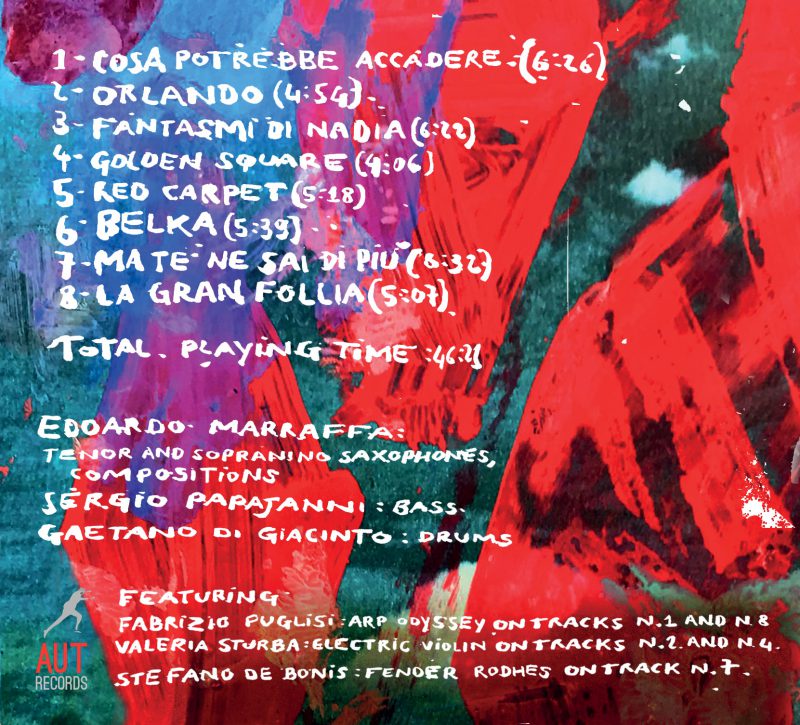 1- COSA POTREBBE ACCADERE (6:26)
2- ORLANDO (4:54)
3- FANTASMI DI NADIA (6:22)
4- GOLDEN SQUARE (4:06)
5- RED CARPET (5:18)
6- BELKA (5:39)
7- MA TE NE SAI DI PIÙ (6:32)
8- LA GRAN FOLLIA (5:07)
TOTAL PLAYING TIME :46:25
EDOARDO MARRAFFA:
TENOR AND SOPRANINO SAXOPHONES,
COMPOSITIONS
SERGIO PAPAJANNI: BASS.
GAETANO DI GIACINTO: DRUMS
FEATURING
FABRIZIO PUGLISI: ARP ODYSSEY ON TRACKS N.1 AND N.8
VALERIA STURBA: ELECTRIC VIOLIN ON TRACKS N.2. AND N.4.
STEFANO DE BONIS: FENDER RODHES ON TRACK N.7.
AUT
RECORDS